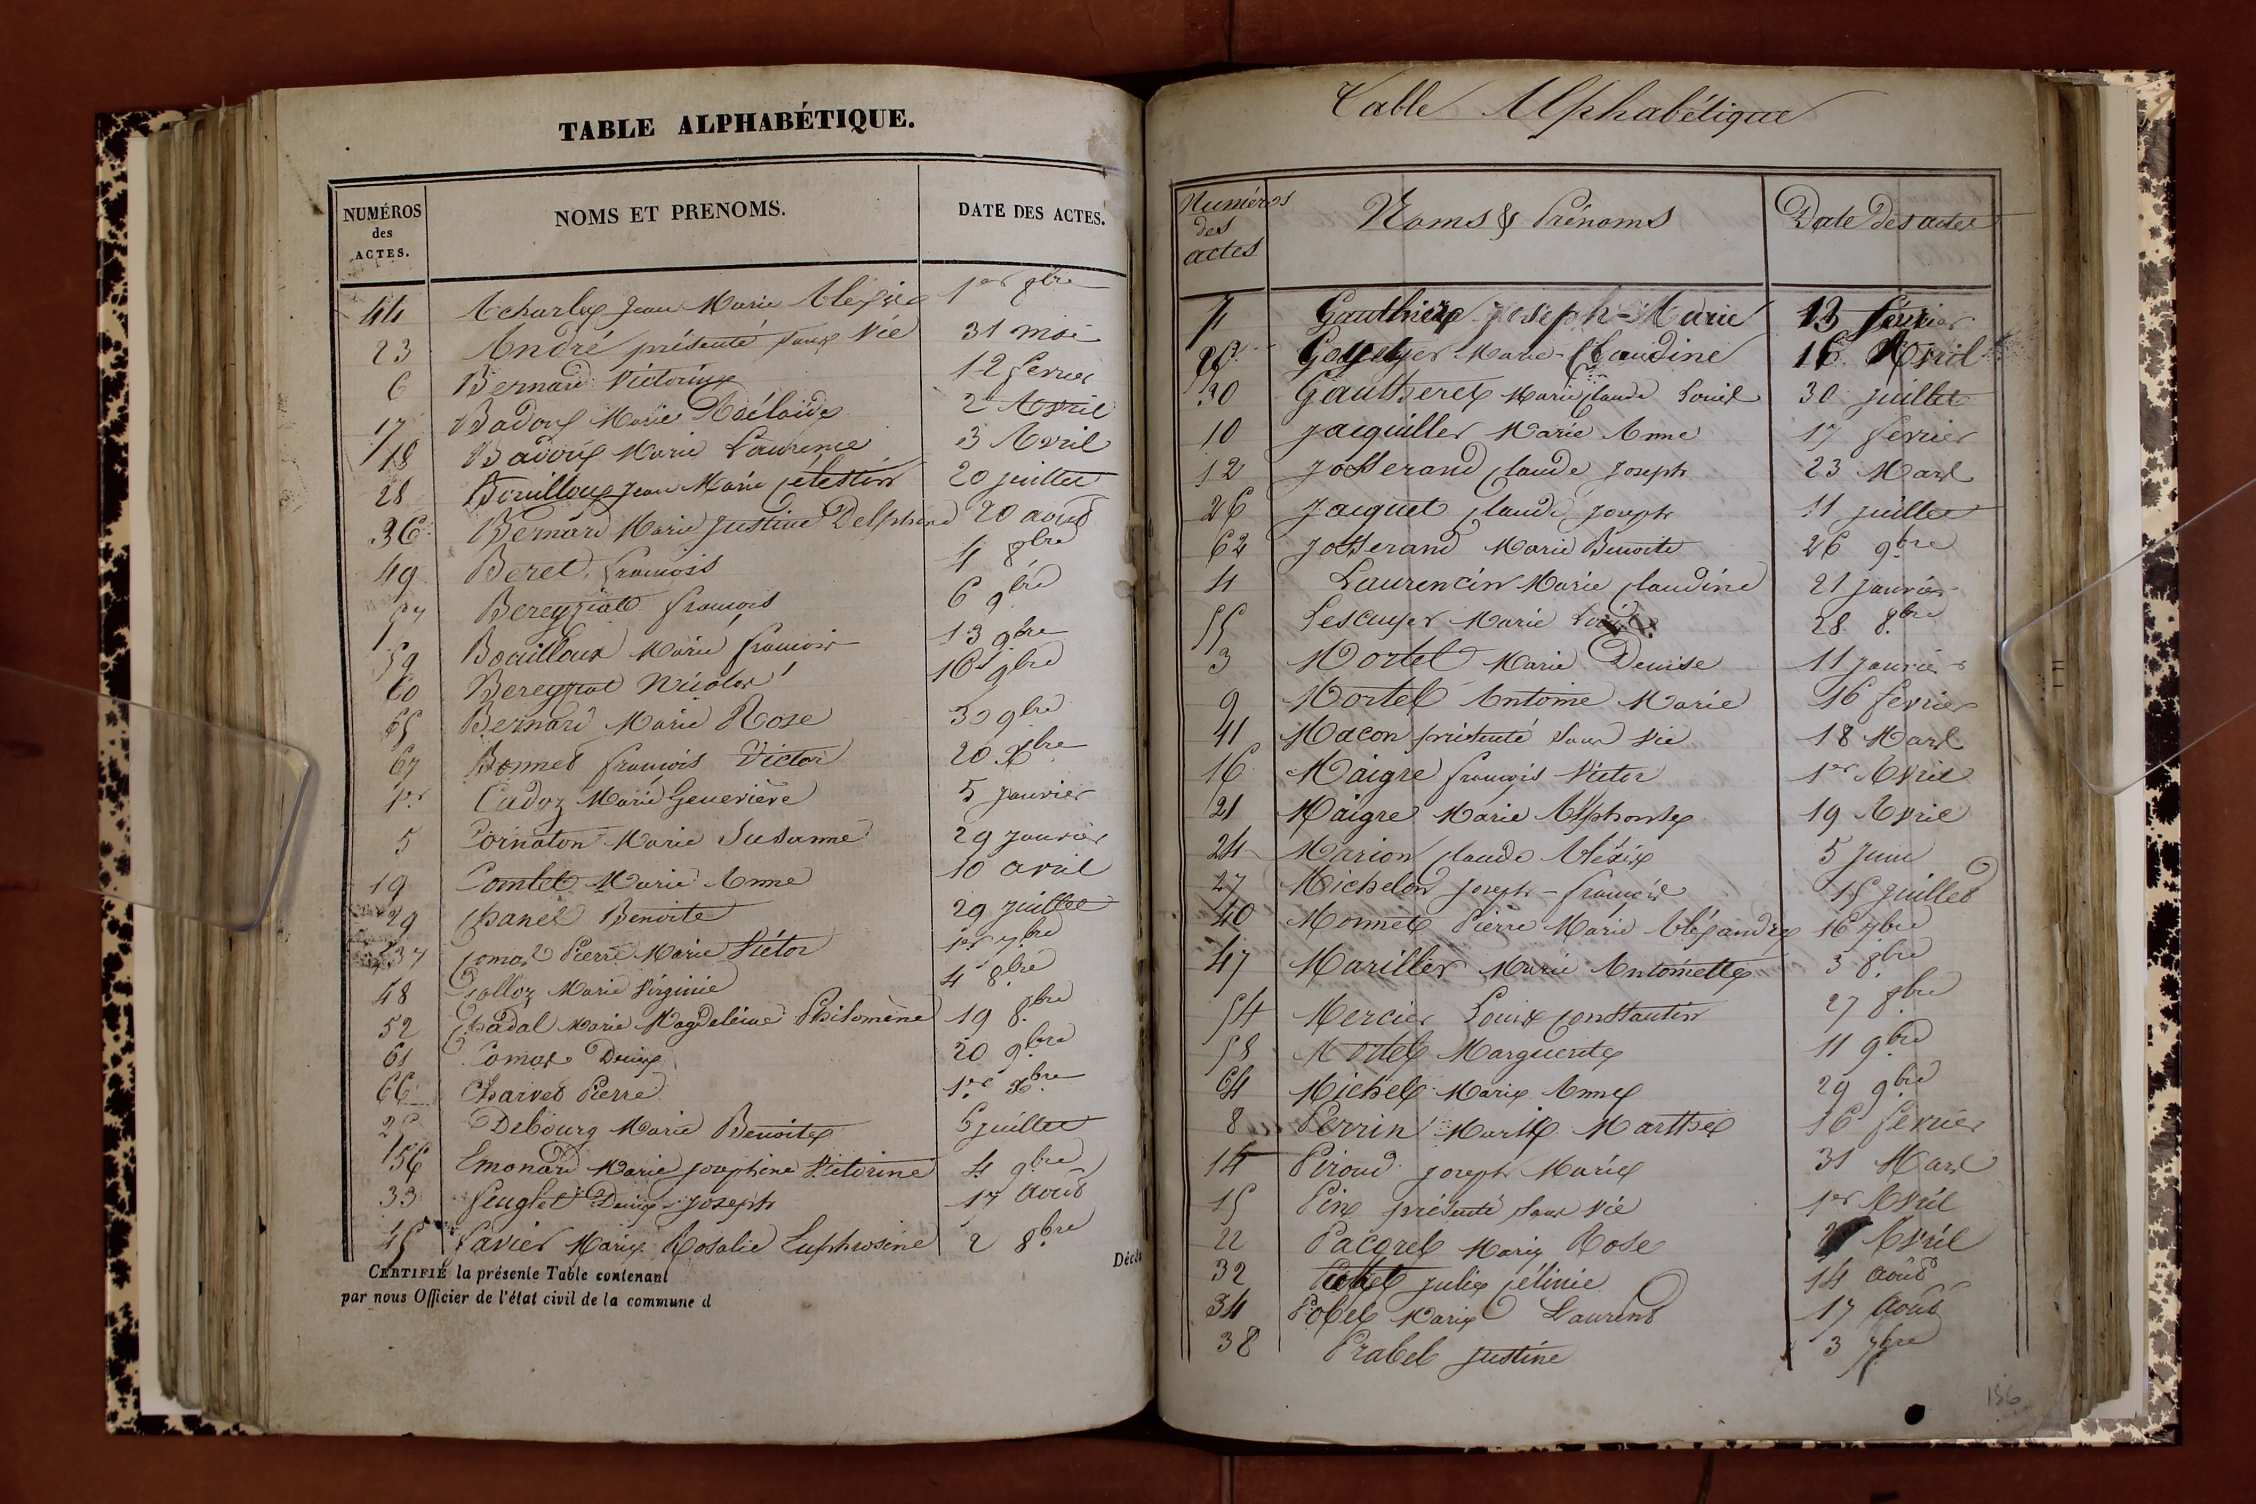 TABLE ALPHABÉTIQUE.
NUMÉROS des ACTES. NOMS ET PRENOMS. DATE DES ACTES.
44 Acharles Jean Marie Alexis 1er 8bre
23 André présenté sans vie 31 mai
6 Bernard Victorine 12 fevrier
17 Badoux Marie Adélaïde 2 Avril
18 Badoux Marie Laurence 3 Avril
28 Bouilloux Jean Marie Célestin 20 juillet
36 Bernard Marie Justine Delphine 20 aout
49 Beret François 4 8bre
57 Bereyziat François 6 9bre
59 Bouilloux Marie François 13 9bre
60 Bereyziat Nicolas 16 9bre
65 Bernard Marie Rose 30 9bre
67 Bonnet François Victor 20 Xbre
1er Cadoz Marie Genevieve 5 Janvier
5 Cornaton Marie Susanne 29 Janvier
19 Comtet Marie Anne 10 avril
29 Chanel Benoite 29 juillet
37 Comas Pierre Marie Victor 1er 7bre
48 Marie Virginie 4 8bre
52 Chadal Marie Magdeleine Philomène 19 8bre
61 Comas Denise 20 9bre
66 Charvet Pierre 1er Xbre
25 Debourg Marie Benoite juillet
56 Emonard Marie Josephine Victorine 4 9bre
33 Feuglet Denis Joseph 17 Aout
45 Favier Marie Rosalie Euphrosine 2 8bre
CERTIFIÉ la présente Table contenant
par nous Officier de l'état civil de la commune d
Décla
Table Alphabétique
Numéros des actes Noms & Prénoms Date des actes
7 Gauthier Joseph-Marie 13 février
Marie-Claudine 16 Avril
30 Gautheret Marie Claude Louis 30 juillet
10 Jacquiller Marie Anne 17 fevrier
12 Josserand Claude Joseph 23 Mars
26 Jacquet Claude Joseph 11 juillet
62 Josserand Marie Benoite 26 9bre
4 Laurencin Marie Claudine 21 janvier
55 Lescuyer Marie 28 8bre
3 Mortel Marie Denise 11 janvier
9 Mortel Antoine Marie 16 fevrier
11 Macon présenté sans vie 18 Mars
16 Maigre François Victor 1er Avril
21 Maigre Marie Alphonse 19 Avril
24 Marion Claude Alexis 5 Juin
27 Michelon Joseph-François 15 juillet
40 Monnet Pierre Marie Aléxandre 16 7bre
47 Mariller Marie Antoinette 3 8bre
54 Mercier Louis Constantin 27 8bre
58 Mortel Marguerite 11 9bre
64 Michel Marie Anne 29 9bre
8 Perrin Marie Marthe 16 fevrier
14 Piroud Joseph Marie 31 Mars
15 Pin présenté sans vie 1er Avril
22 Pacoret Marie Rose 2 Avril
32 Julie Célinie 14 août
34 Pobel Marie Laurent 17 Aout
38 Prabel Justine 3 7bre
136